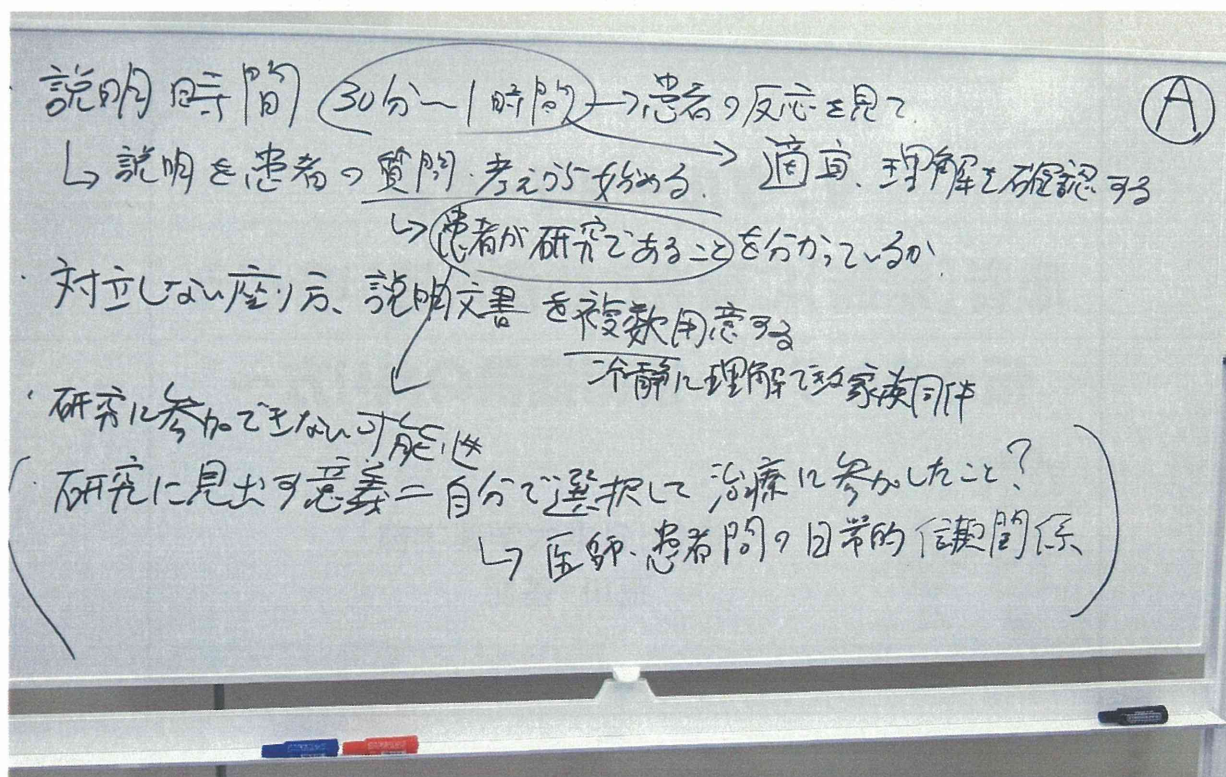 ・説明時間 30分〜1時間 → 患者の反応を見て Ⓐ
↳ 説明を患者の質問・考えから始める。 → 適宜、理解を確認する
↳ 患者が研究であることを分かっているか
・対立しない座り方、説明文書を複数用意する
冷静に理解できる家族同伴
・研究に参加できない可能性
(・研究に見出す意義=自分で選択して治療に参加したこと?
↳ 医師・患者間の日常的信頼関係)